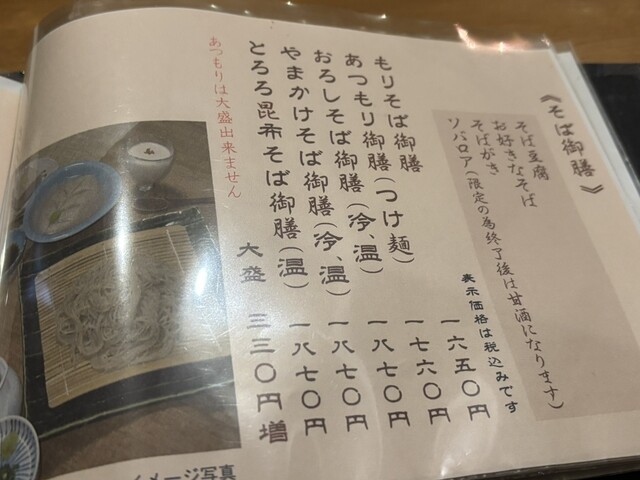 《そば御膳》
そば豆腐
お好きなそば
そばがき
ソバロア(限定の為終了後は甘酒になります)
表示価格は税込みです
もりそば御膳 一六五〇円
あつもり御膳(つけ麺) 一七六〇円
おろしそば御膳(冷、温) 一八七〇円
やまかけそば御膳(冷、温) 一八七〇円
とろろ昆布そば御膳(温) 一八七〇円
大盛 三三〇円増
あつもりは大盛出来ません
イメージ写真